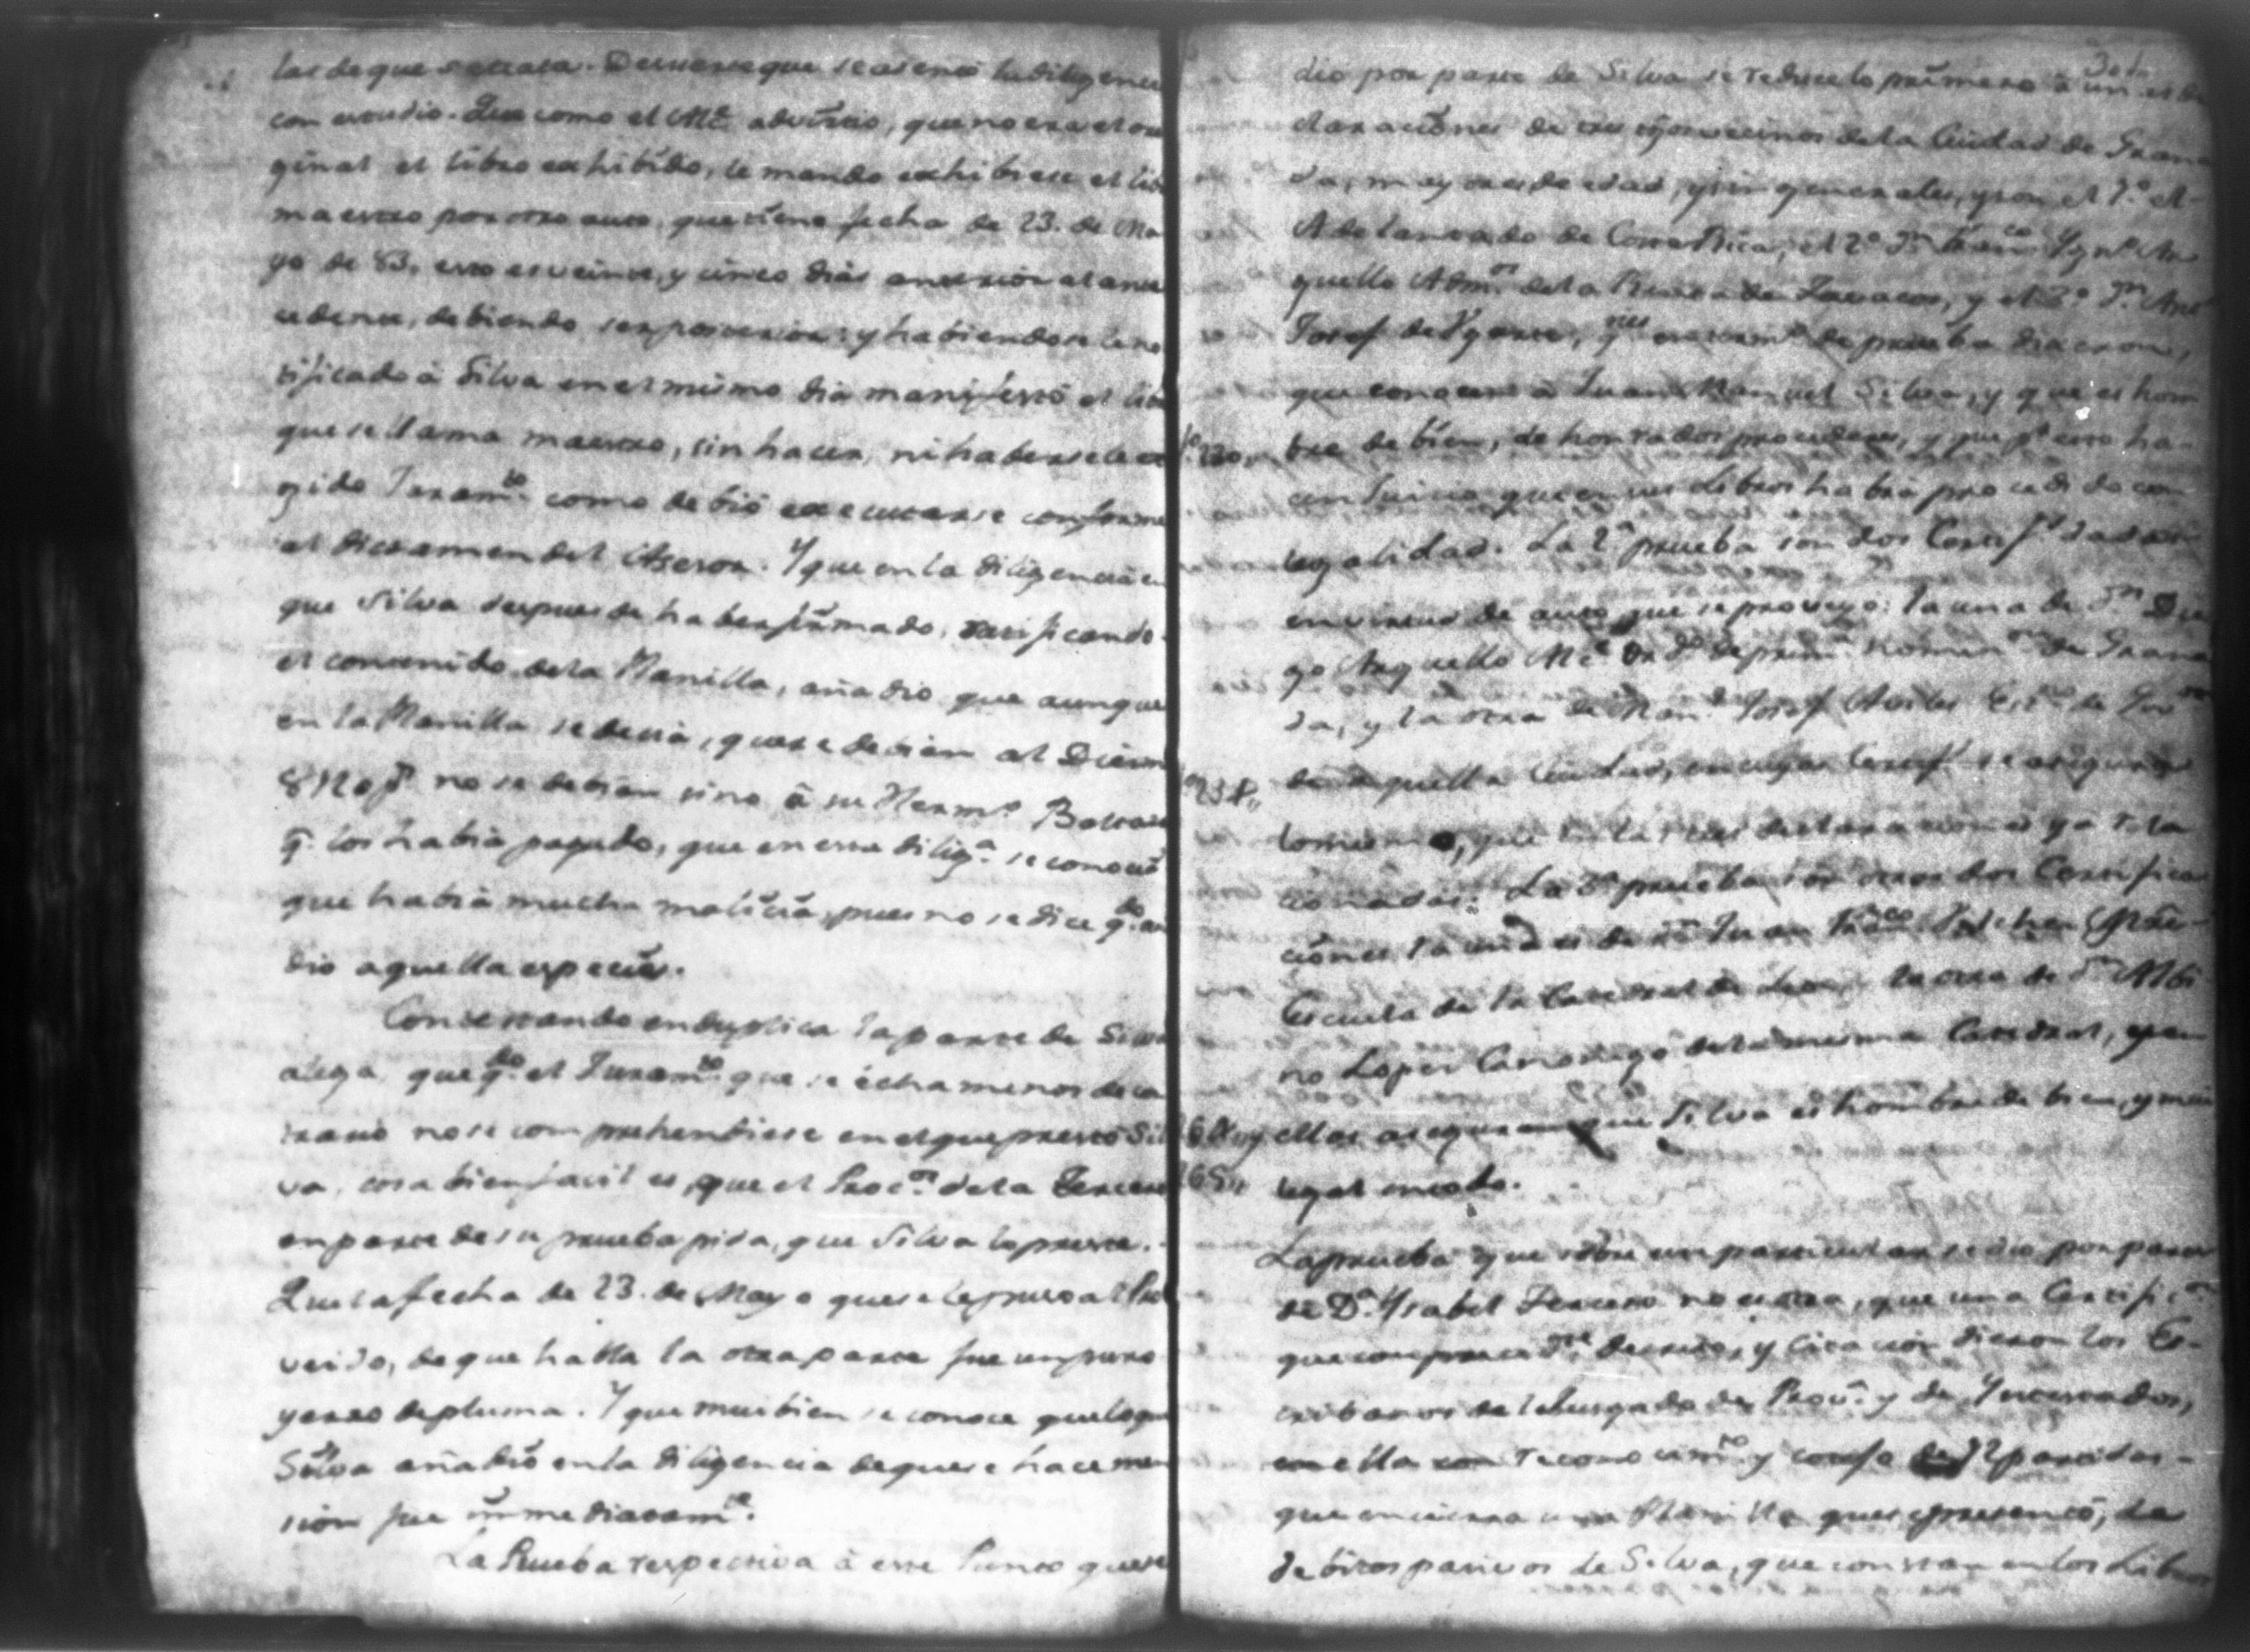 las de que se trata. De suerte que se asentó la diligencia
con estudio. Que como el Alc.e advirtio, que no era el ori
ginal el libro exhibido, le mando exhibiese el lib
maestro por otro auto, que tiene fecha de 23. de Ma
yo de 83, esto es veinte, y cinco dias anterior al ante
cedente, debiendo ser posterior: y habiendosele no
tificado â Silva en el mismo dia manifestó el lib
que se llama maestro, sin hacer, ni habersele ex
gido Juram.to como debió executarse conforme
al dictamen del Asesor. Y que en la diligencia en
que Silva despues de haber firmado, ratificando
el contenido de la Planilla, añadio que aunque
en la Planilla se decia, que se debian al Diezm
812 op.s no se debian sino â su Herm.o Baltasar
q.e los habia pagado, que en esta dilig.a se conoció
que habia mucha malicia, pues no se dice q.do aña
dio aquella especie.
Contestando en duplica la parte de Silva
alega, que q.do el Juram.to que se écha menos de co
trario no se comprehendiese en el que prestó Sil
va, cosa bien facil es, que el Proc.or de la Tercero
en parte de su prueba pida, que Silva lo preste.
Que la fecha de 23. de Mayo que se le puso al Pro
veido, de que habla la otra parte fue un puro
yerro de pluma. Y que mui bien se conoce que lo que
Silva añadió en la diligencia de que se hace men
sion fue inmediatam.te
La Prueba respectiva â este Punto que se
dio por parte de Silva se reduce lo primero â tres de
claraciones de tres vecinos de la Ciudad de Grana
da, mayores de edad, y sin generales, y son el 1.o el
Adelantado de Costa Rica, el 2.o D.n Fran.co Ygn.o Ar
guello Adm.or de la Renta de Tavacos, y el 3.o D.n Ant.o
Josef de Ygarte, que dixeron,
que conocen â Juan Manuel Silva, y que es hom
f.o 230,, bre de bien, de honrados procederes, y que p.r esto ha
cen Juicio que en sus Libros habrá procedido con
legalidad. La 2.a prueba son dos Certif.s dadas
en virtud de auto que se proveyo: la una de D.n Die
go Arguello Alc.e de Grana
da, y la otra de Man.l Josef Aviles Esc.no de
238,, de aquella Ciudad, en cuyas Certif.s se asegura
lo mismo, que en las tres declaraciones ya rela
cionadas: La 3.a prueba son otras dos Certifica
ciones la una es de D.n Juan Fran.co Vilches Maes
Escuela de la Catedral de Leon, la otra de D.n Albi
no Lopez Canonigo de la misma Catedral, y en
ellas aseguran que Silva es hombre de bien, y mui
265,, legal en todo.
La prueba que sobre este particular se dio por parte
de D.a Ysabel Tercero no es otra, que una Certific.n
que con preced.te decreto, y Citacion dieron los Es-
cribanos del Jusgado de Prov.a y de Yntestados,
en ella con reconocim.to y cotejo de 12 partidas
que encierra una Planilla que se presentó, de
debitos pasivos de Silva, que constan en los Libros